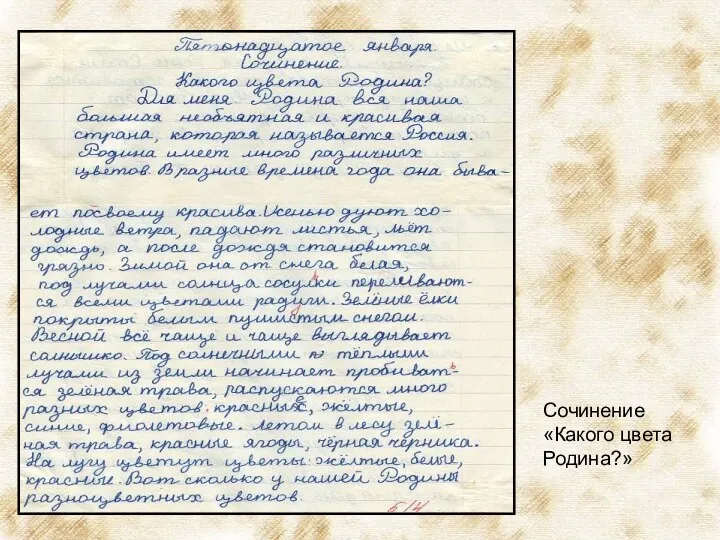 Пятонадцатое января.
Сочинение.
Какого цвета Родина?
Для меня Родина вся наша
большая необъятная и красивая
страна, которая называется Россия.
Родина имеет много различных
цветов. В разные времена года она быва-
ет посвоему красива. Осенью дуют хо-
лодные ветра, падают листья, льёт
дождь, а после дождя становится
грязно. Зимой она от снега белая,
под лучами солнца сосульки переливают-
ся всеми цветами радуги. Зелёные ёлки
покрыты белым пушистым снегом.
Весной всё чаще и чаще выглядывает
солнышко. Под солнечными и тёплыми
лучами из земли начинает пробиват-
ь
ся зелёная трава, распускаются много
разных цветов: красные, жёлтые,
синие, фиолетовые. Летом в лесу зелё-
ная трава, красные ягоды, чёрная черника.
На лугу цветут цветы: жёлтые, белые,
красные. Вот сколько у нашей Родины
разноцветных цветов.
5/4
Сочинение
«Какого цвета
Родина?»